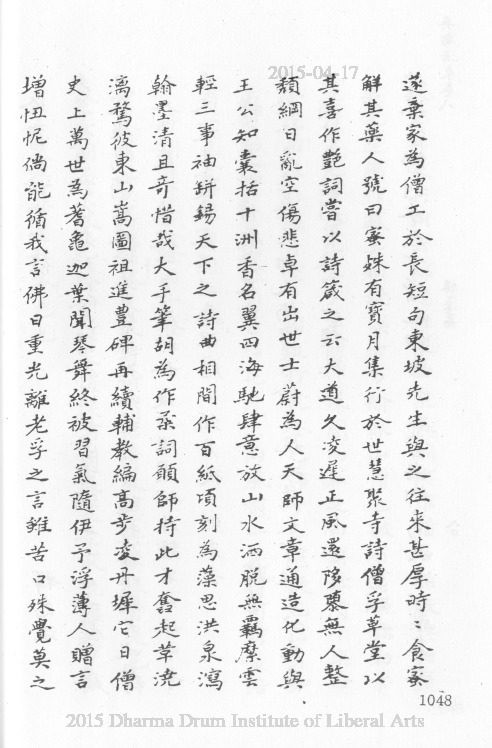 2015-04-17
遂棄家為僧工於長短句東坡先生與之往來甚厚時〻食蜜
解其藥人號曰蜜姝有寳月集行於世慧聚寺詩僧孚草堂以
其喜作艶詞嘗以詩箴之云大道久凌遲正風還陊隳無人整
頽綱日亂空傷悲卓有出世士蔚為人天師文章通造化動與
王公知囊括十洲香名翼四海馳肆意放山水洒脱無羈縻雲
輕三事袖缾錫天下之詩曲相間作百紙頃刻為藻思洪泉瀉
翰墨清且竒惜哉大手筆胡為作柔詞願師持此才奮起革澆
漓騖彼東山嵩圖祖進豊碑再續輔教編高步凌丹墀它日僧
史上萬世為蓍龜迦葉聞琴舞終被習氣隨伊予浮薄人贈言
增忸怩倘能循我言佛日重光離老孚之言雖苦口殊覺莫之
1048
2015 Dharma Drum Institute of Liberal Arts